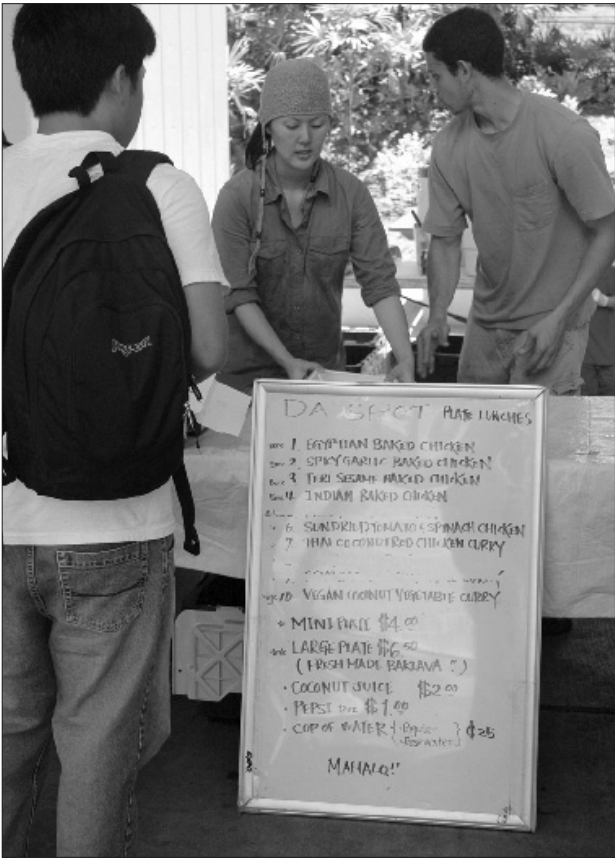 JANSPORT
DA SPOT PLATE LUNCHES
1. EGYPTIAN BAKED CHICKEN
2. SPICY GARLIC BAKED CHICKEN
3 TERI SESAME BAKED CHICKEN
4. INDIAN BAKED CHICKEN
6. SUNDRIED TOMATO & SPINACH CHICKEN
7 THAI COCONUT RED CHICKEN CURRY
10 VEGAN COCONUT VEGETABLE CURRY
MINI PLATE $4.00
LARGE PLATE $6.50
(FRESH MADE BAKLAVA
• COCONUT JUICE $2.00
• PEPSI $1.00
• CUP OF WATER ¢25
MAHALO!!